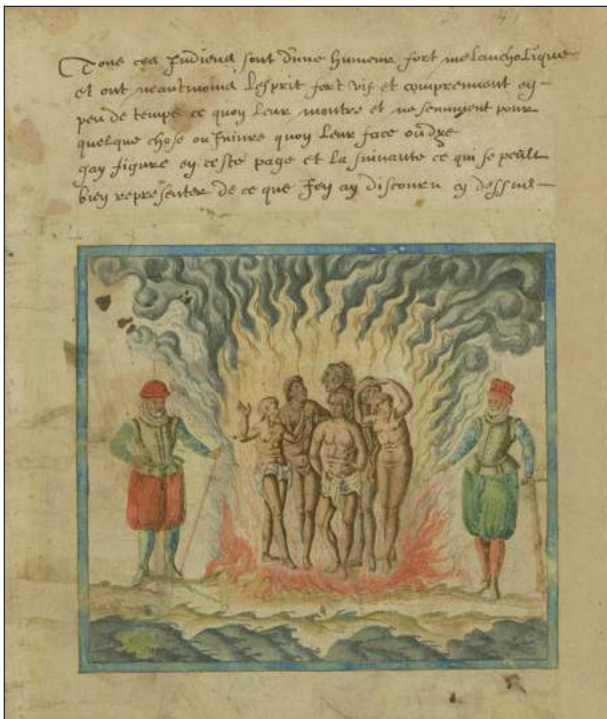 Tous ces Indiens sont dune humeur fort melancholique
et ont neantmoins lesprit fort vif et comprennent en
peu de temps ce quon leur montre et ne sennuient pour
quelque chose ou injure quon leur face ou dye
jay figuré en ceste page et la suivante ce qui se peult
bien representer de ce que jen ay discouru cy dessus